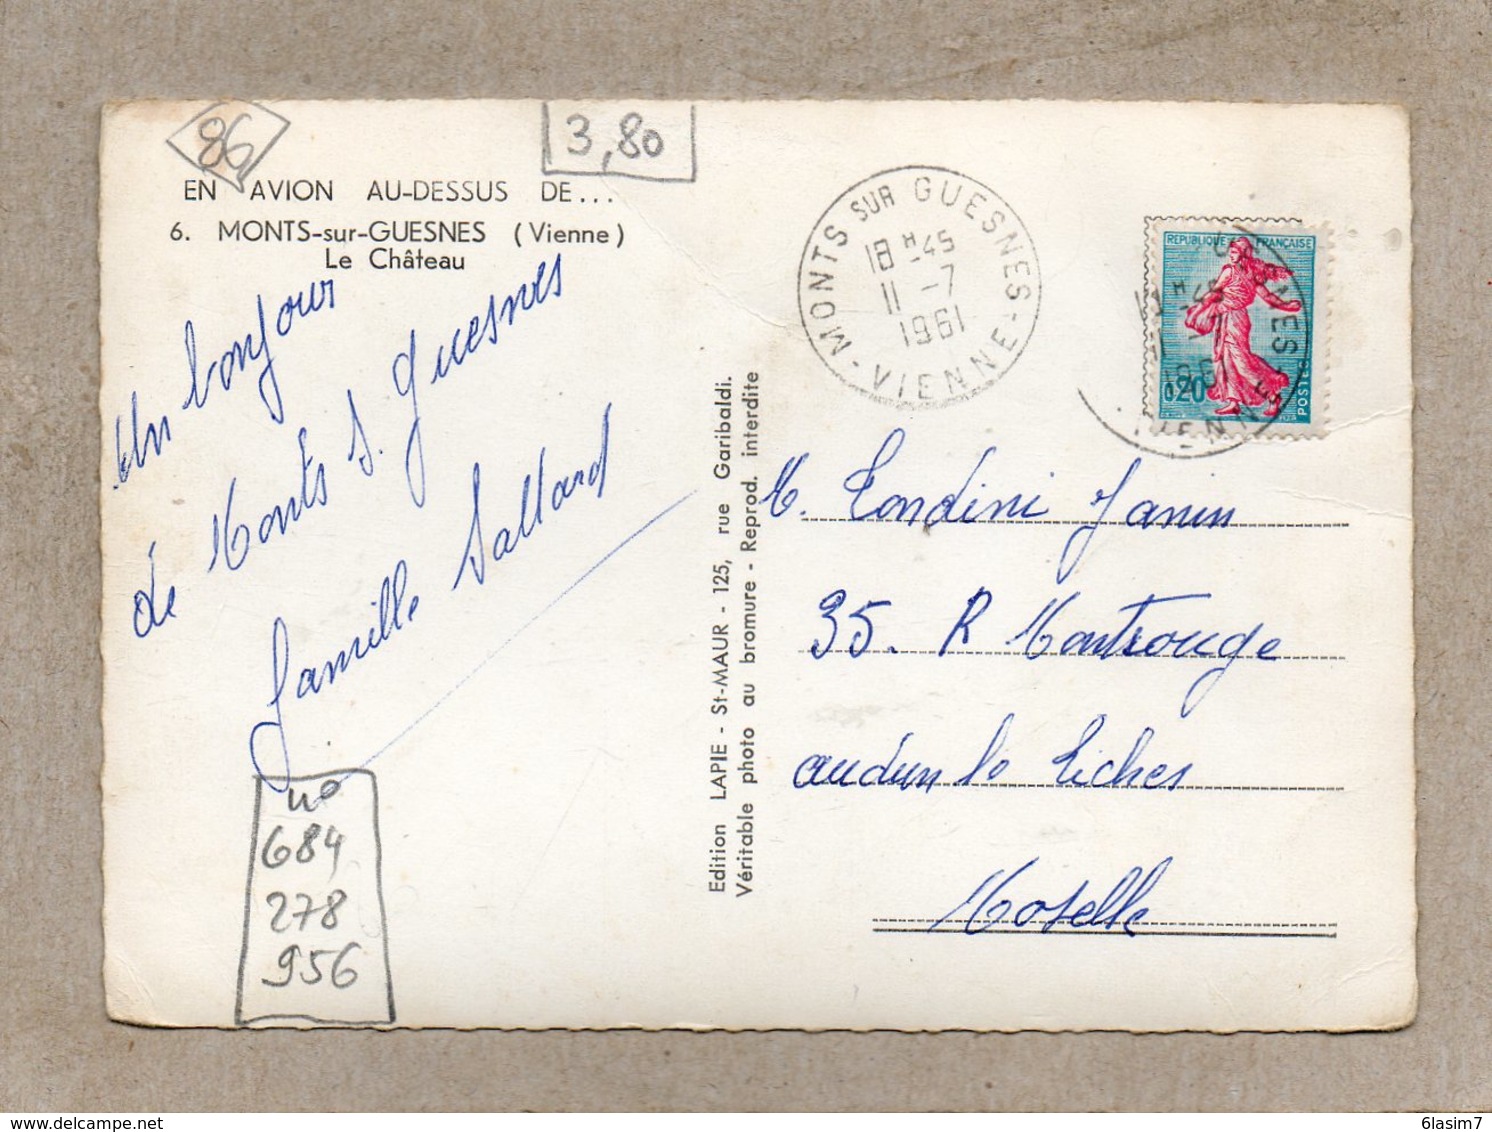 86
3,80
EN AVION AU-DESSUS DE...
6. MONTS-sur-GUESNES (Vienne)
Le Château
Un bonjour
de Monts s. Guesnes
famille Sallard
n°
684
278
956
Edition LAPIE - St-MAUR - 125, rue Garibaldi.
Véritable photo au bromure - Reprod. interdite
MONTS SUR GUESNES
18 H 45
11 -7
1961
- VIENNE -
REPUBLIQUE FRANÇAISE
0,20
POSTES
M. Tondini Janin
35. R Montrouge
audun le Tiches
Moselle
6lasim7